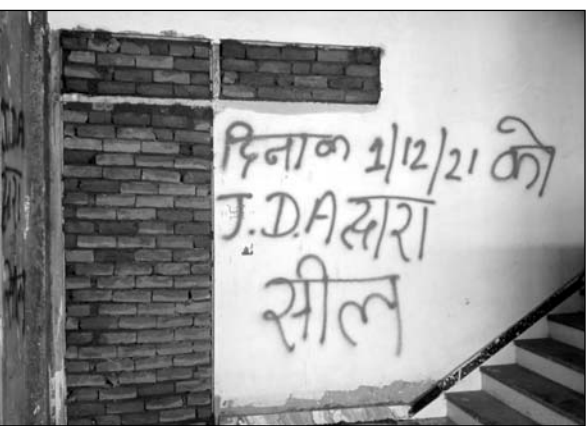 दिनाक 1/12/21 को
J.D.A द्वारा
सील